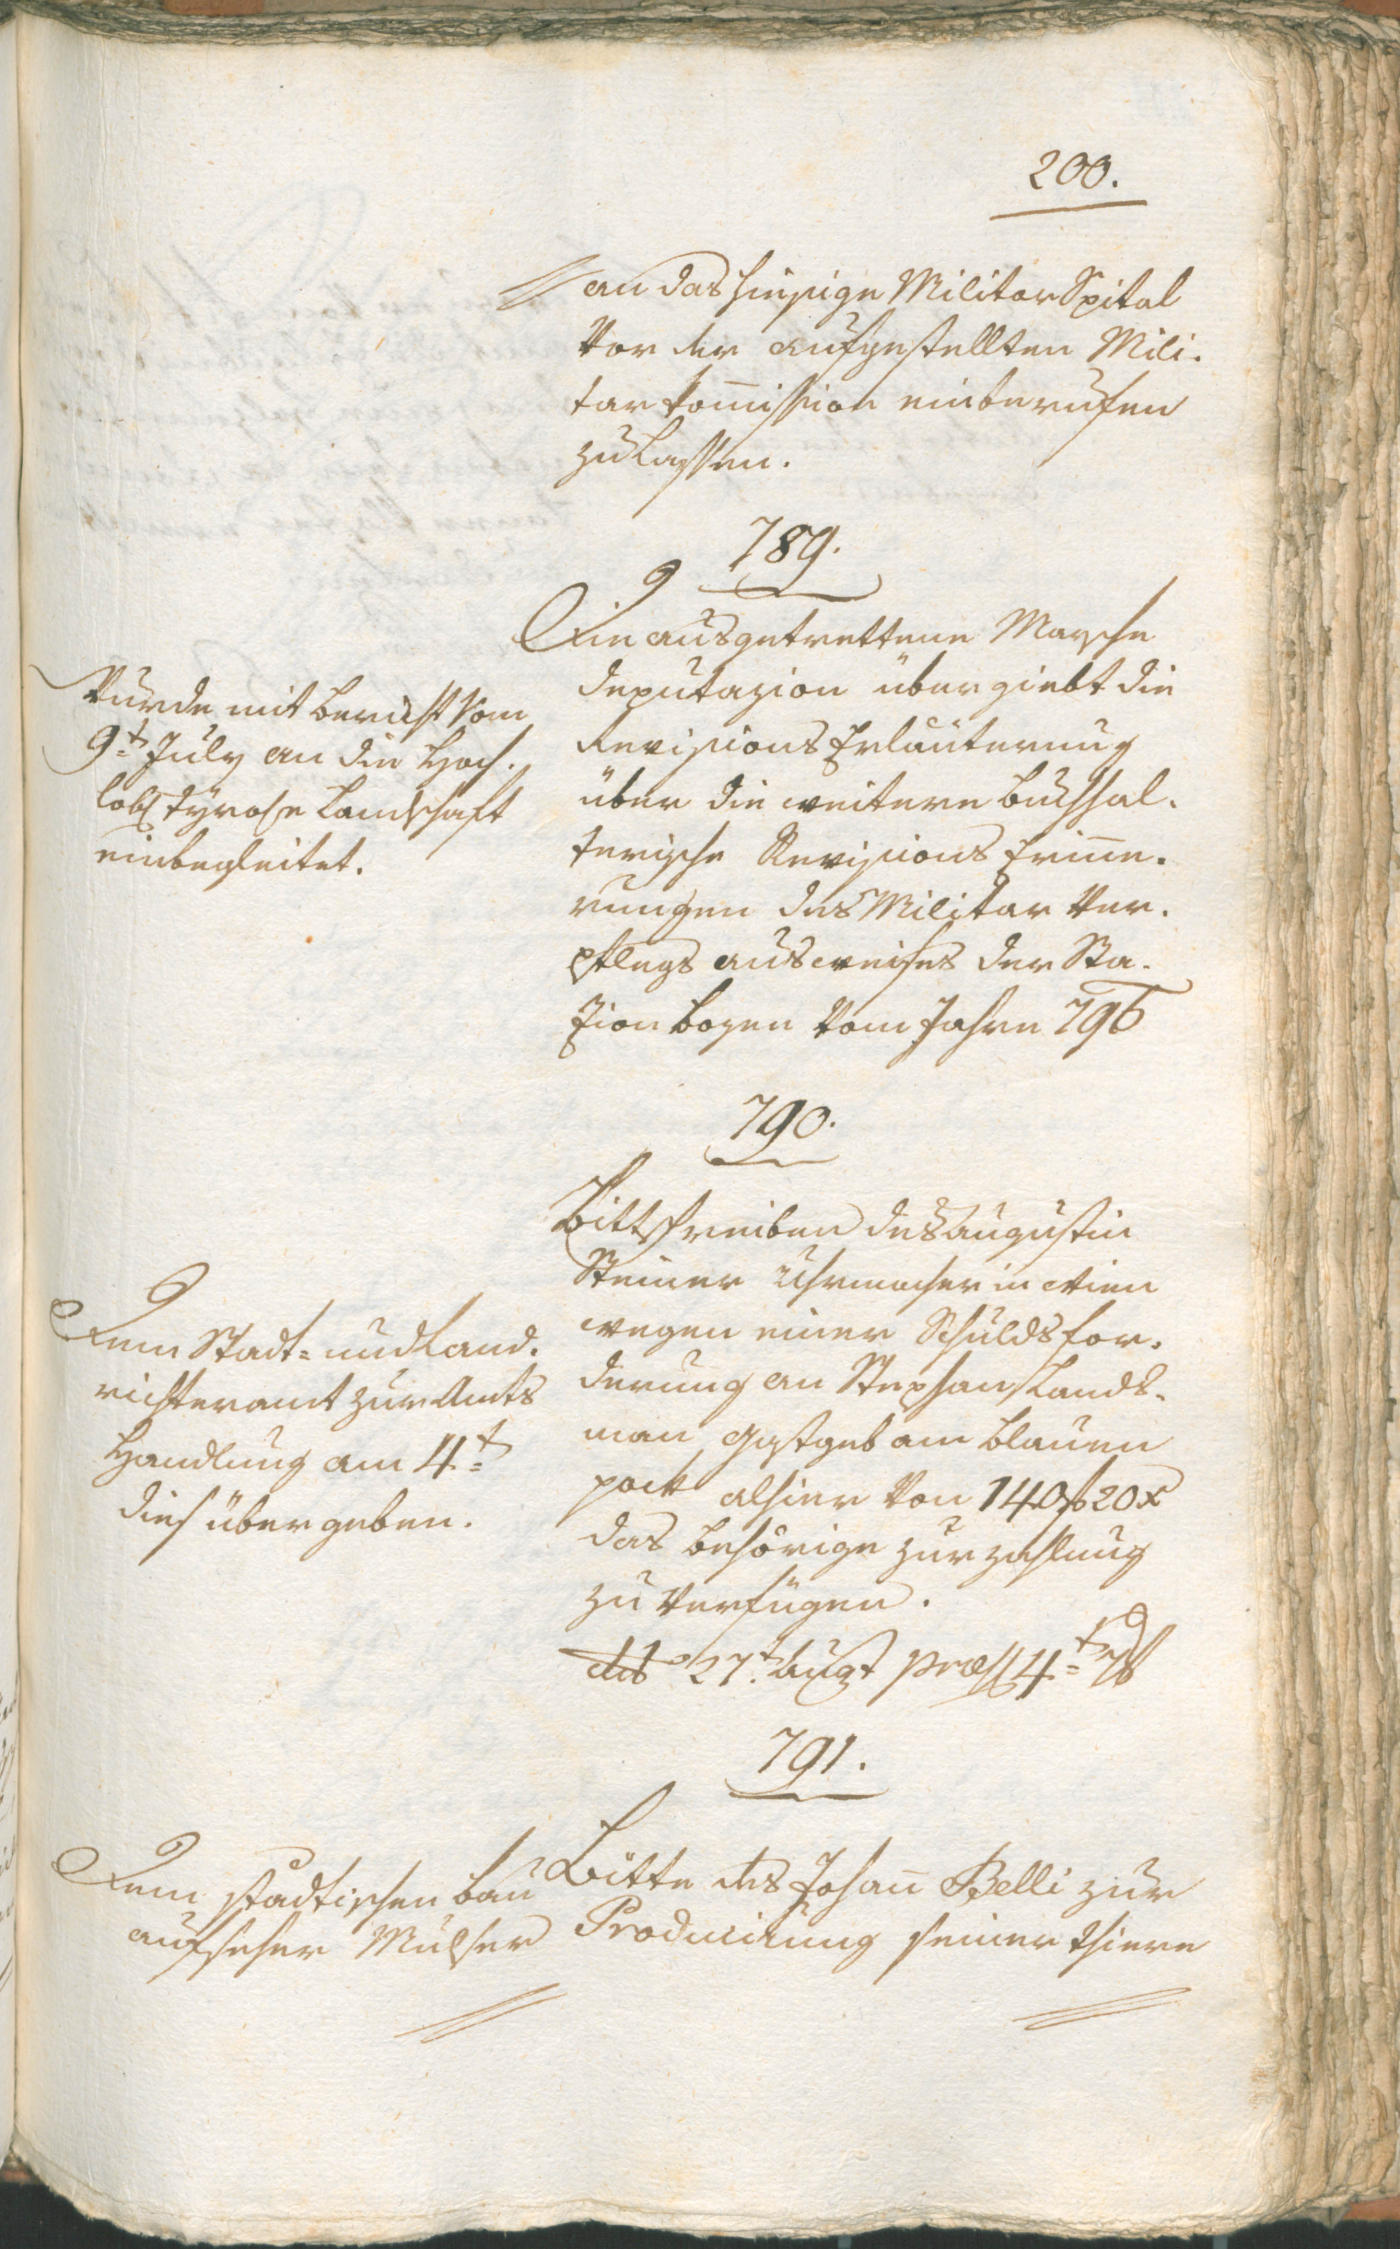 200.
an das hiesige Militar Spital
vor der aufgestellten Mili-
tar Kom̄ission einberufen
zu lassen.
789.
Die ausgetrettene Marsche
deputazion übergiebt die
Revisions Erläuterung
über die weitere buchhal-
terische Revisions Erinne-
rungen des Militar Ver-
pflegs ausweises der Sta-
zion Bozen vom Jahre 796
Wurde mit Bericht vom
9t July an die Hoch-
lobl tyrolse Landschaft
einbegleitet.
790.
Bittschreiben des Augustin
Steiner Uhrmacher in Wien
wegen einer Schuldsfor-
derung an Stephan Lands-
man Gastgeb am blauen
pock alhier von 140 f 20 x
das behörige zur zahlung
zu verfügen.
dtd 27t Augt præs 4t 7b
Dem Stadt- und Land-
richteramt zur Amts
Handlung am 4t
dies übergeben.
791.
Bitte des Johan̄ Belli zur
Producirung seiner thiere
Dem stadtischen Bau
aufseher Mulser